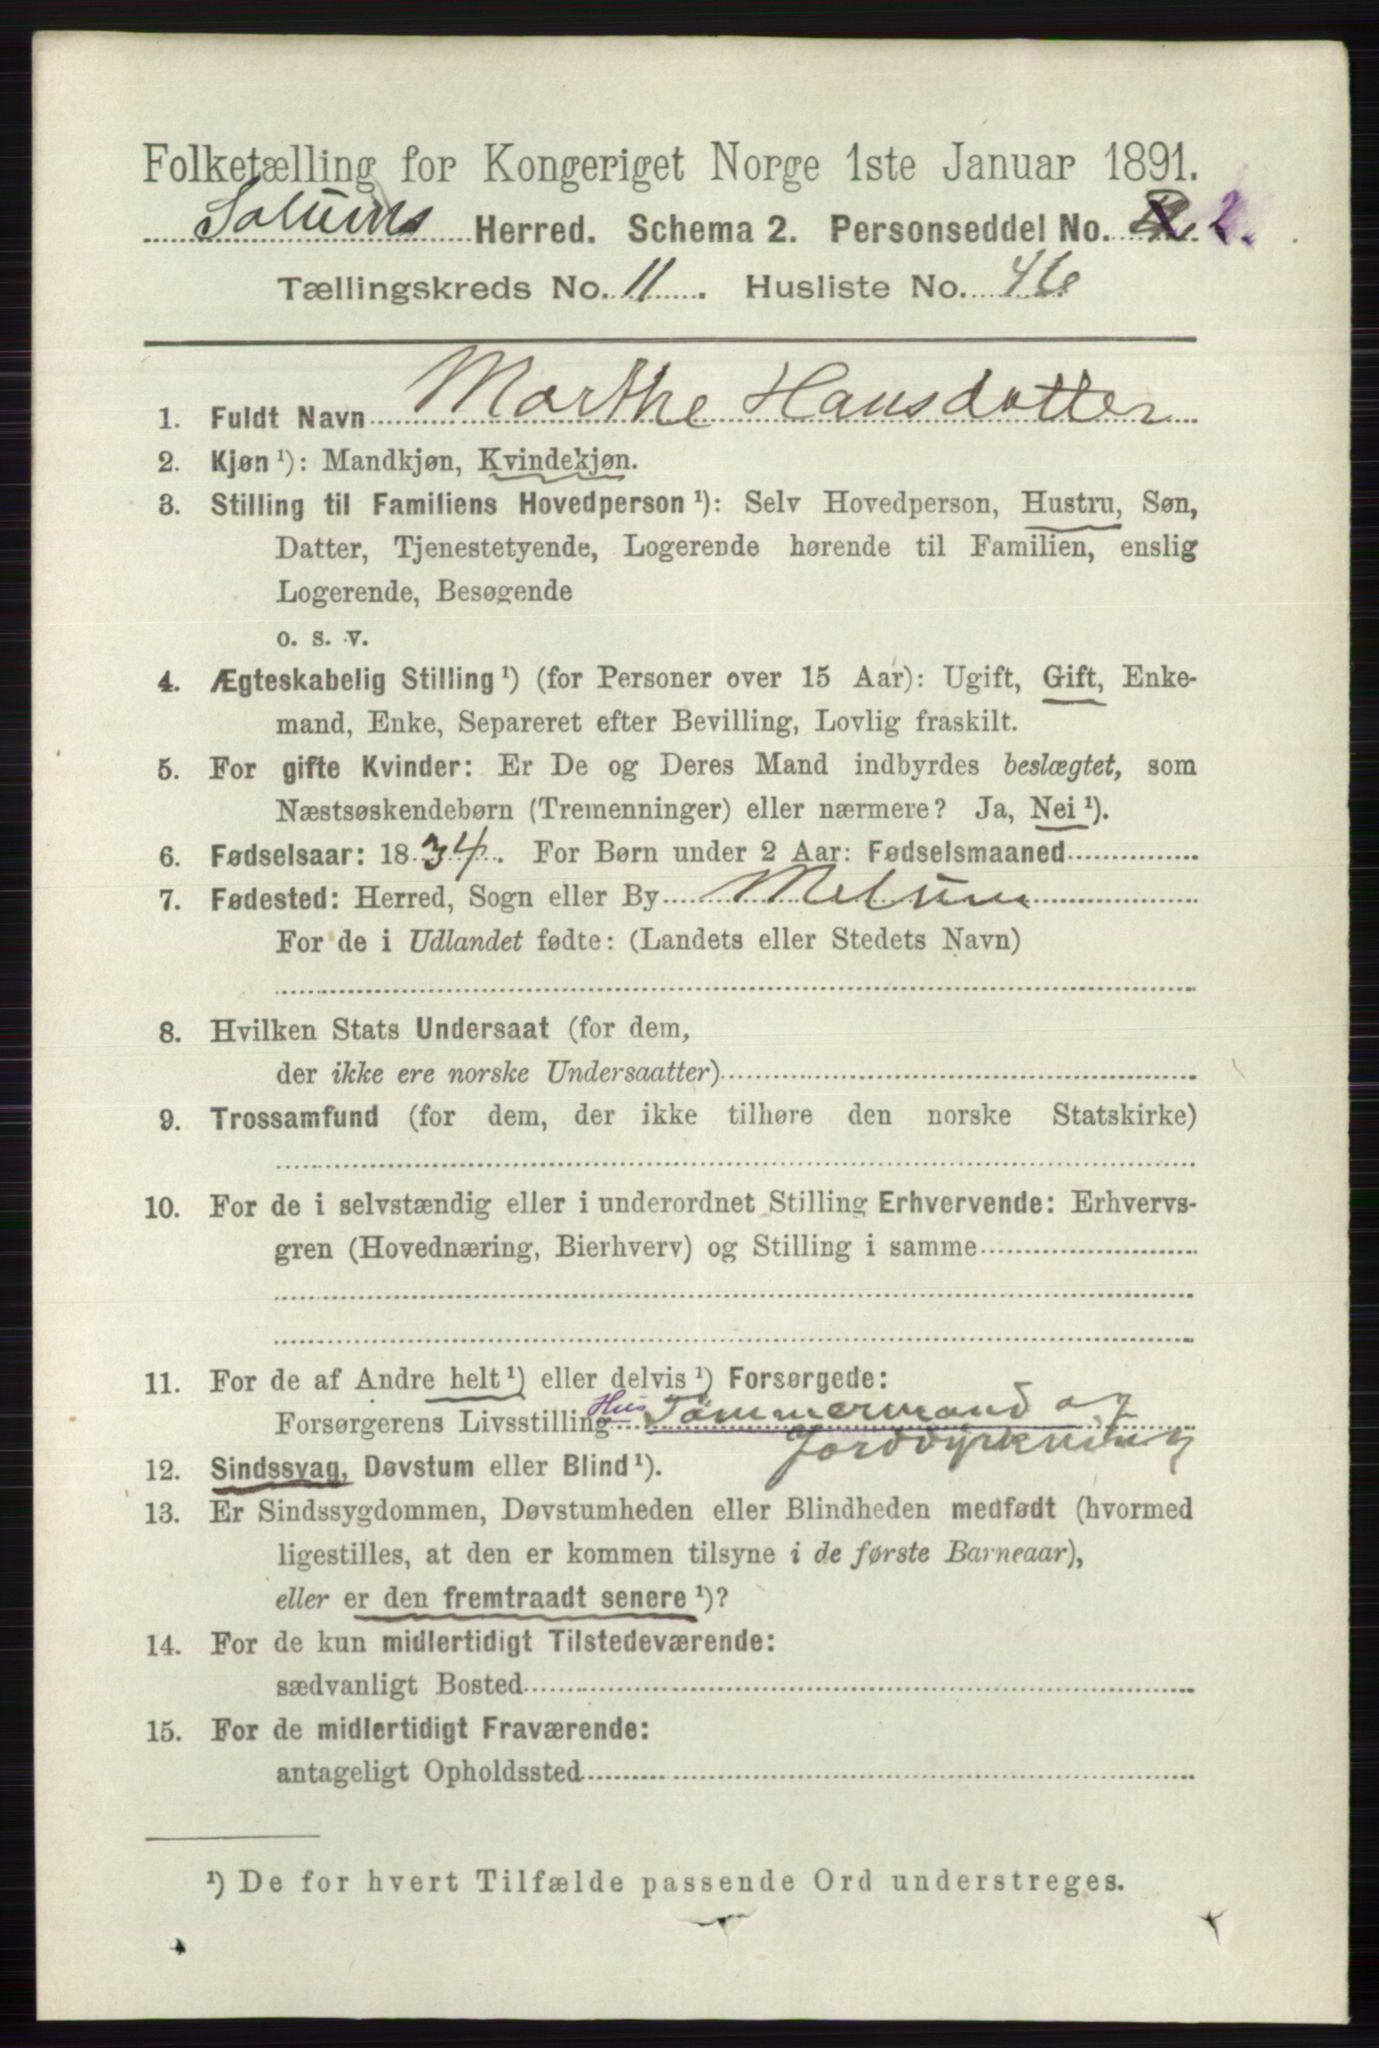 Folketælling for Kongeriget Norge 1ste Januar 1891.
Solums Herred. Schema 2. Personseddel No. 2.
Tællingskreds No. 11. Husliste No. 46
1. Fuldt Navn Marthe Hansdatter
2. Kjøn ¹): Mandkjøn, Kvindekjøn.
3. Stilling til Familiens Hovedperson ¹): Selv Hovedperson, Hustru, Søn,
Datter, Tjenestetyende, Logerende hørende til Familien, enslig
Logerende, Besøgende
o. s. v.
4. Ægteskabelig Stilling ¹) (for Personer over 15 Aar): Ugift, Gift, Enke-
mand, Enke, Separeret efter Bevilling, Lovlig fraskilt.
5. For gifte Kvinder: Er De og Deres Mand indbyrdes beslægtet, som
Næstsøskendebørn (Tremenninger) eller nærmere? Ja, Nei ¹).
6. Fødselsaar: 1834. For Børn under 2 Aar: Fødselsmaaned
7. Fødested: Herred, Sogn eller By Melum
For de i Udlandet fødte: (Landets eller Stedets Navn)
8. Hvilken Stats Undersaat (for dem,
der ikke ere norske Undersaatter)
9. Trossamfund (for dem, der ikke tilhøre den norske Statskirke)
10. For de i selvstændig eller i underordnet Stilling Erhvervende: Erhvervs-
gren (Hovednæring, Bierhverv) og Stilling i samme
11. For de af Andre helt ¹) eller delvis ¹) Forsørgede:
Forsørgerens Livsstilling Hus Tømmermand og
Jorddyrkning
12. Sindssvag, Døvstum eller Blind ¹).
13. Er Sindssygdommen, Døvstumheden eller Blindheden medfødt (hvormed
ligestilles, at den er kommen tilsyne i de første Barneaar),
eller er den fremtraadt senere ¹)?
14. For de kun midlertidigt Tilstedeværende:
sædvanligt Bosted
15. For de midlertidigt Fraværende:
antageligt Opholdssted
¹) De for hvert Tilfælde passende Ord understreges.